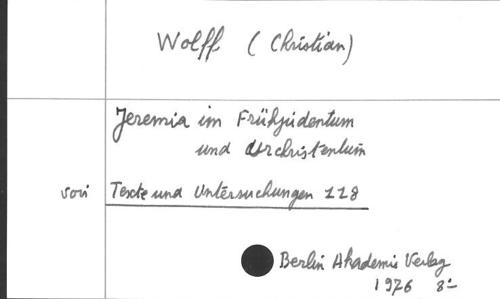 Wolff (Christian)
Jeremia im Frühjudentum
und Urchristentum
voir Texte und Untersuchungen 118
Berlin Akademie Verlag
1976 8=